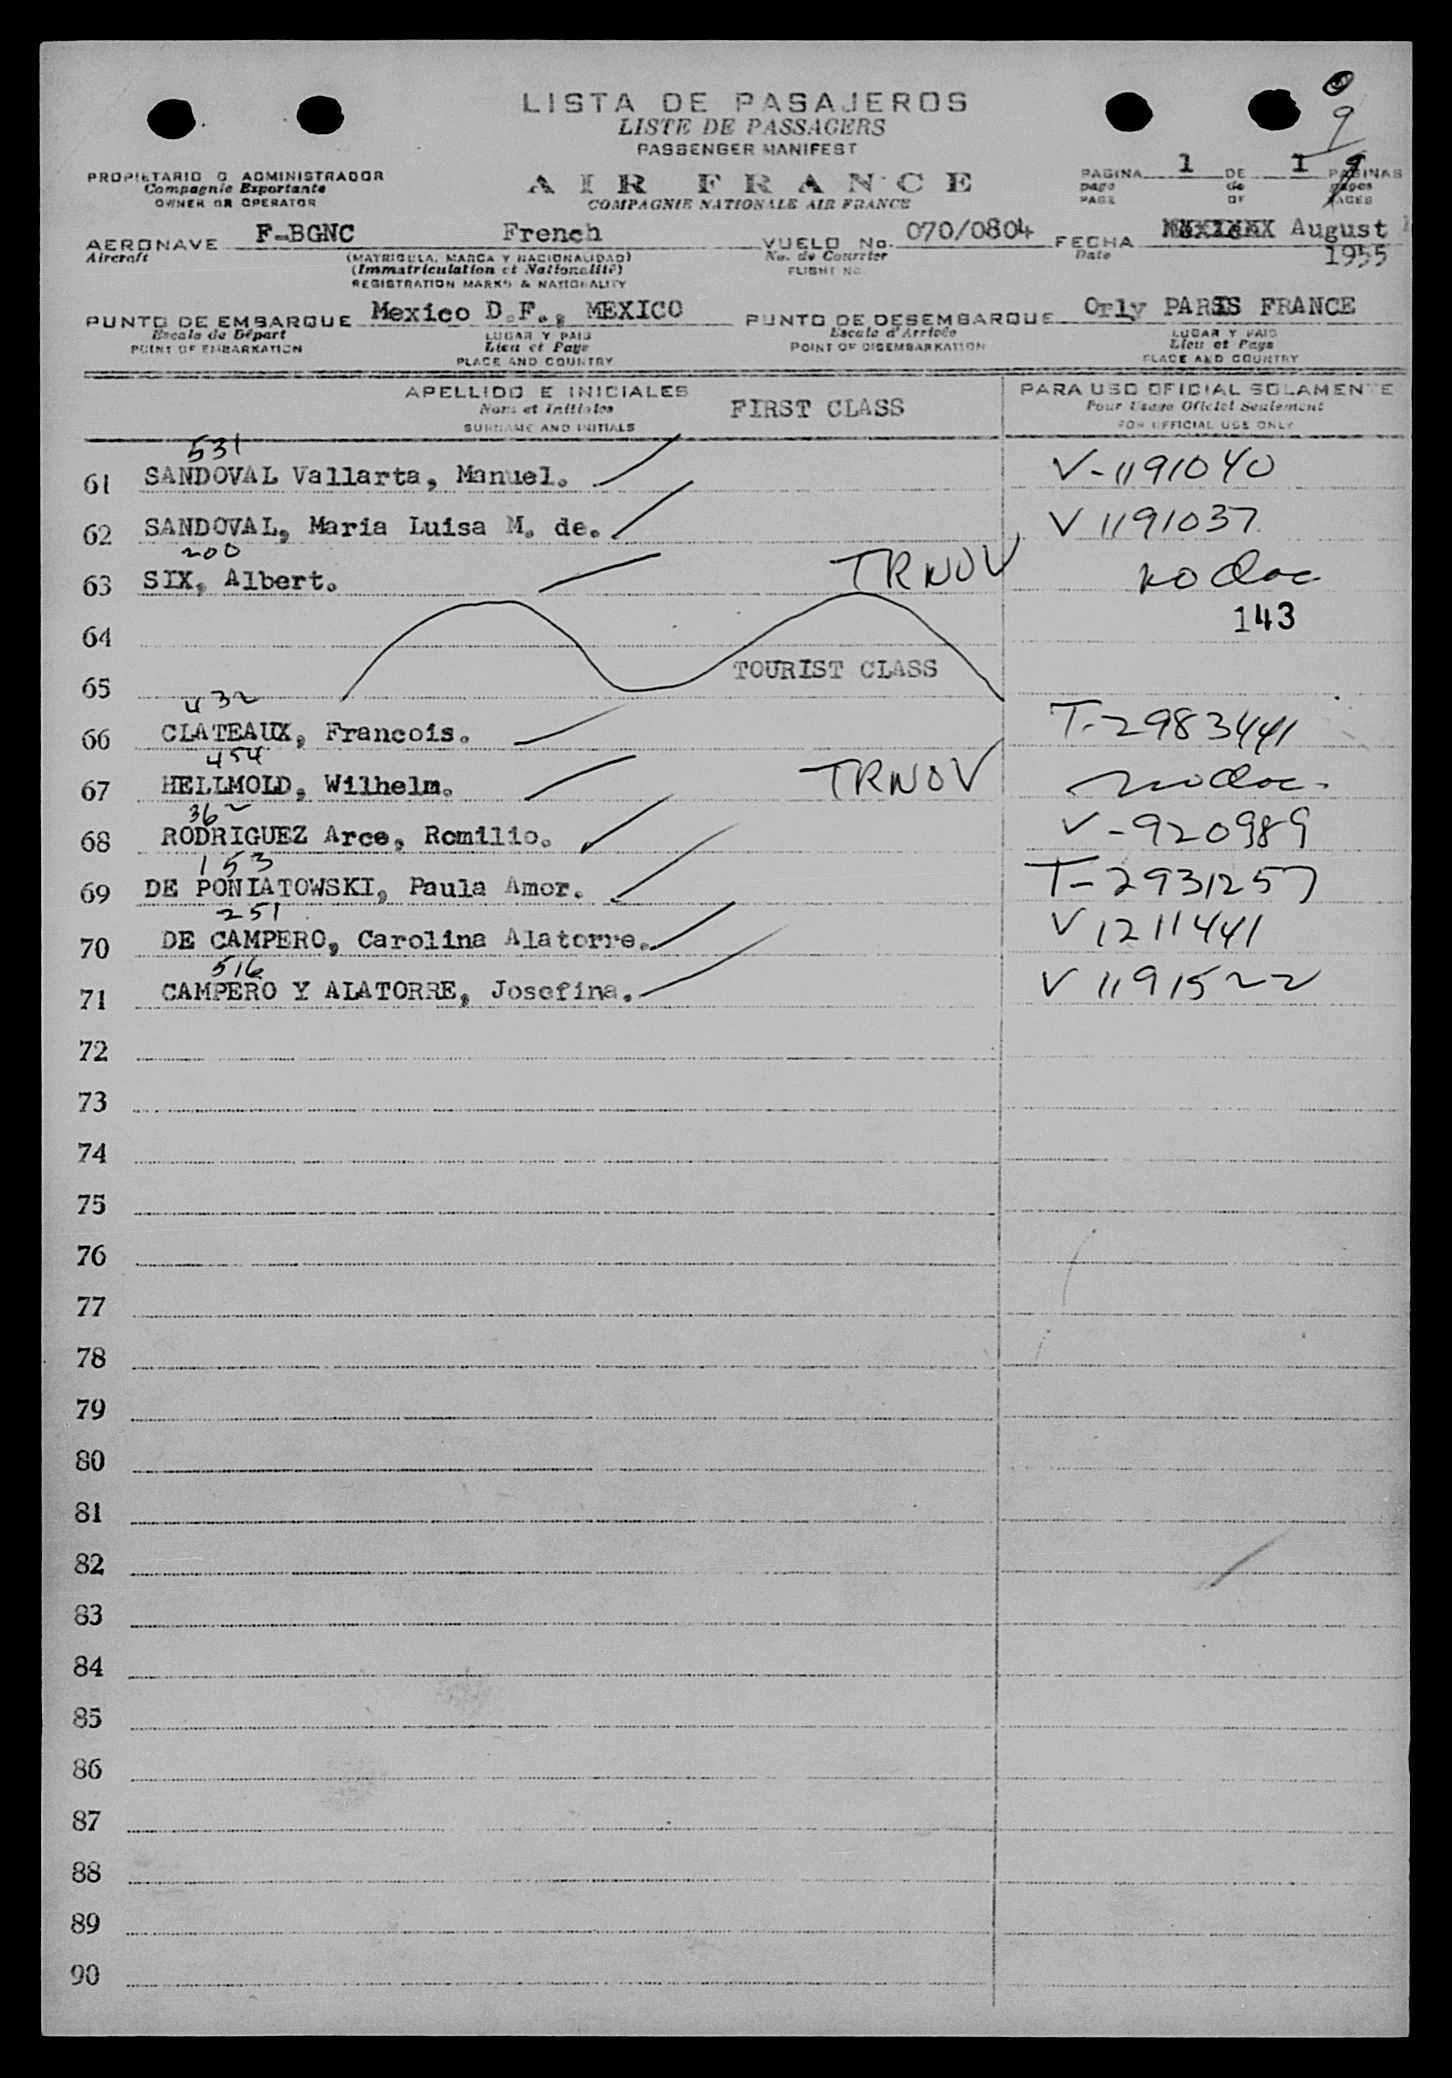 9
LISTA DE PASAJEROS
LISTE DE PASSAGERS
PASSENGER MANIFEST
PROPIETARIO O ADMINISTRADOR
Compagnie Exportante
OWNER OR OPERATOR
AIR FRANCE
COMPAGNIE NATIONALE AIR FRANCE
PAGINA 1 DE 1 PAGINAS
page de pages
PAGE OF PAGES
AERONAVE F-BGNC French VUELO No. 070/0804 FECHA August
Aircraft (MATRICULA, MARCA Y NACIONALIDAD) No. de Courrier Date 1955
(Immatriculation et Nationalité) FLIGHT NO.
REGISTRATION MARKS & NATIONALITY
PUNTO DE EMBARQUE Mexico D.F., MEXICO PUNTO DE DESEMBARQUE Orly PARIS FRANCE
Escala de Départ LUGAR Y PAIS Escala d'Arrivée LUGAR Y PAIS
POINT OF EMBARKATION Lieu et Pays POINT OF DISEMBARKATION Lieu et Pays
PLACE AND COUNTRY PLACE AND COUNTRY
APELLIDO E INICIALES FIRST CLASS PARA USO OFICIAL SOLAMENTE
Nom et Initiales Pour Usage Oficiel Seulement
SURNAME AND INITIALS FOR OFFICIAL USE ONLY
531
61 SANDOVAL Vallarta, Manuel. V-1191040
62 SANDOVAL, Maria Luisa M. de. V 1191037
200
63 SIX, Albert. TRNOV no doc
64 143
65 TOURIST CLASS
432
66 CLATEAUX, Francois. T-2983441
454
67 HELLMOLD, Wilhelm. TRNOV no doc-
362
68 RODRIGUEZ Arce, Romilio. V-920989
153
69 DE PONIATOWSKI, Paula Amor. T-2931257
251
70 DE CAMPERO, Carolina Alatorre. V 1211441
516
71 CAMPERO Y ALATORRE, Josefina. V 1191522
72
73
74
75
76
77
78
79
80
81
82
83
84
85
86
87
88
89
90